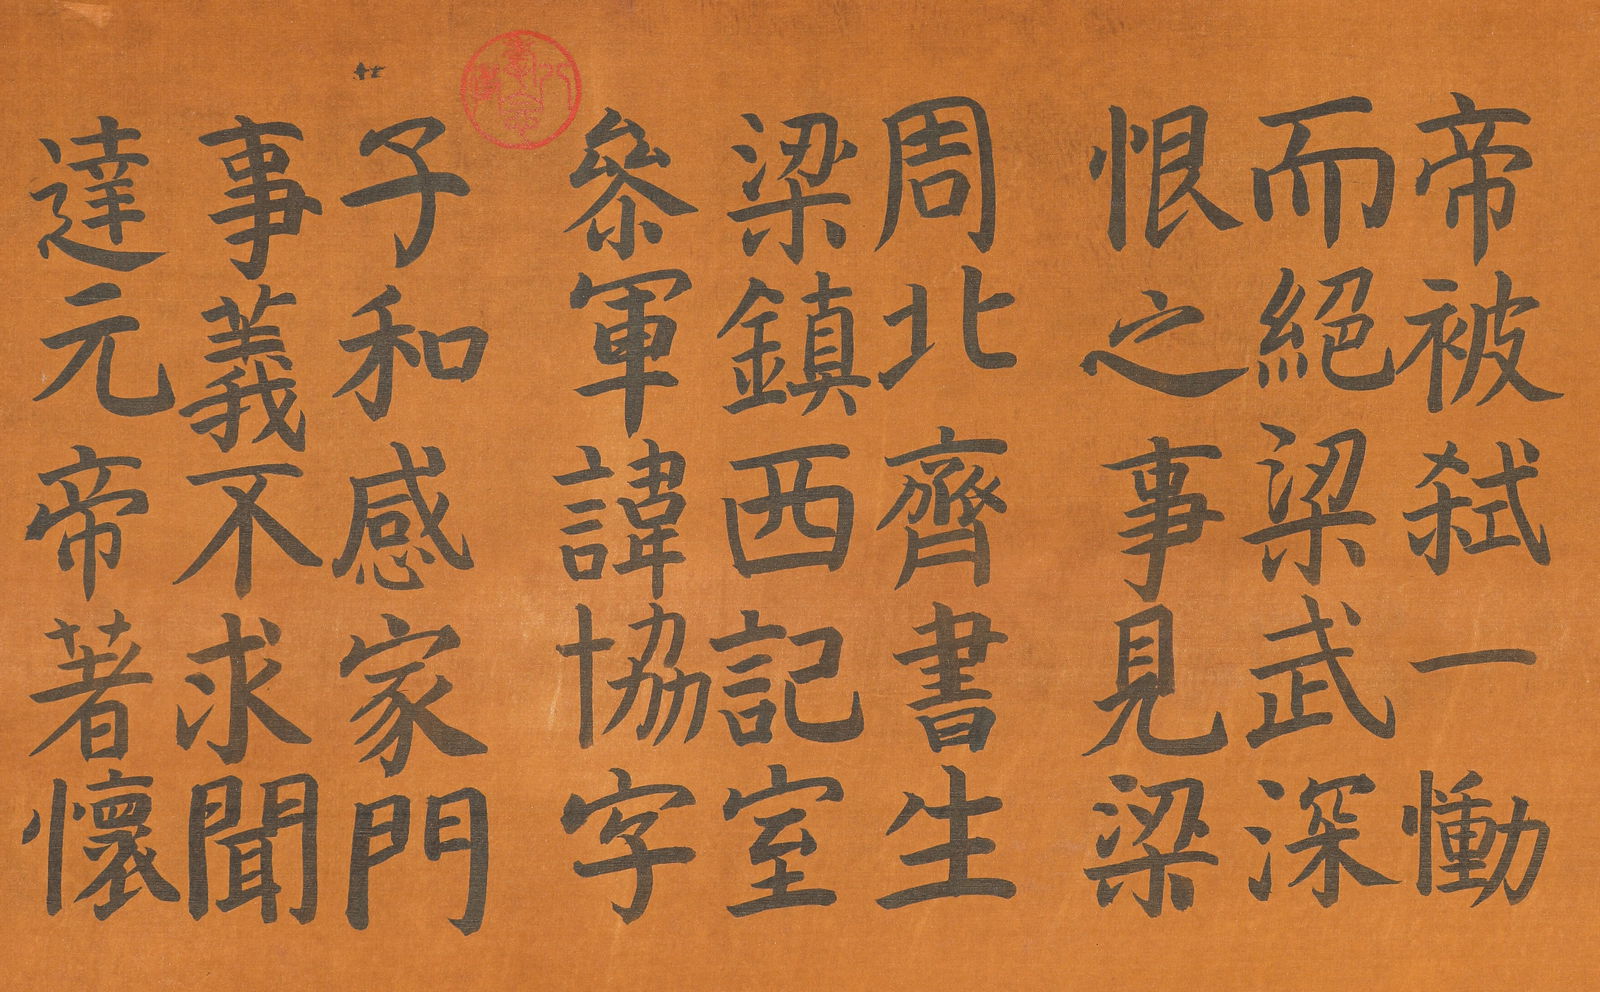 帝被弒一慟
而絕梁武深
恨之事見梁
周北齊書生
梁鎮西記室
參軍諱協字
子和感家門
事義不求聞
達元帝著懷